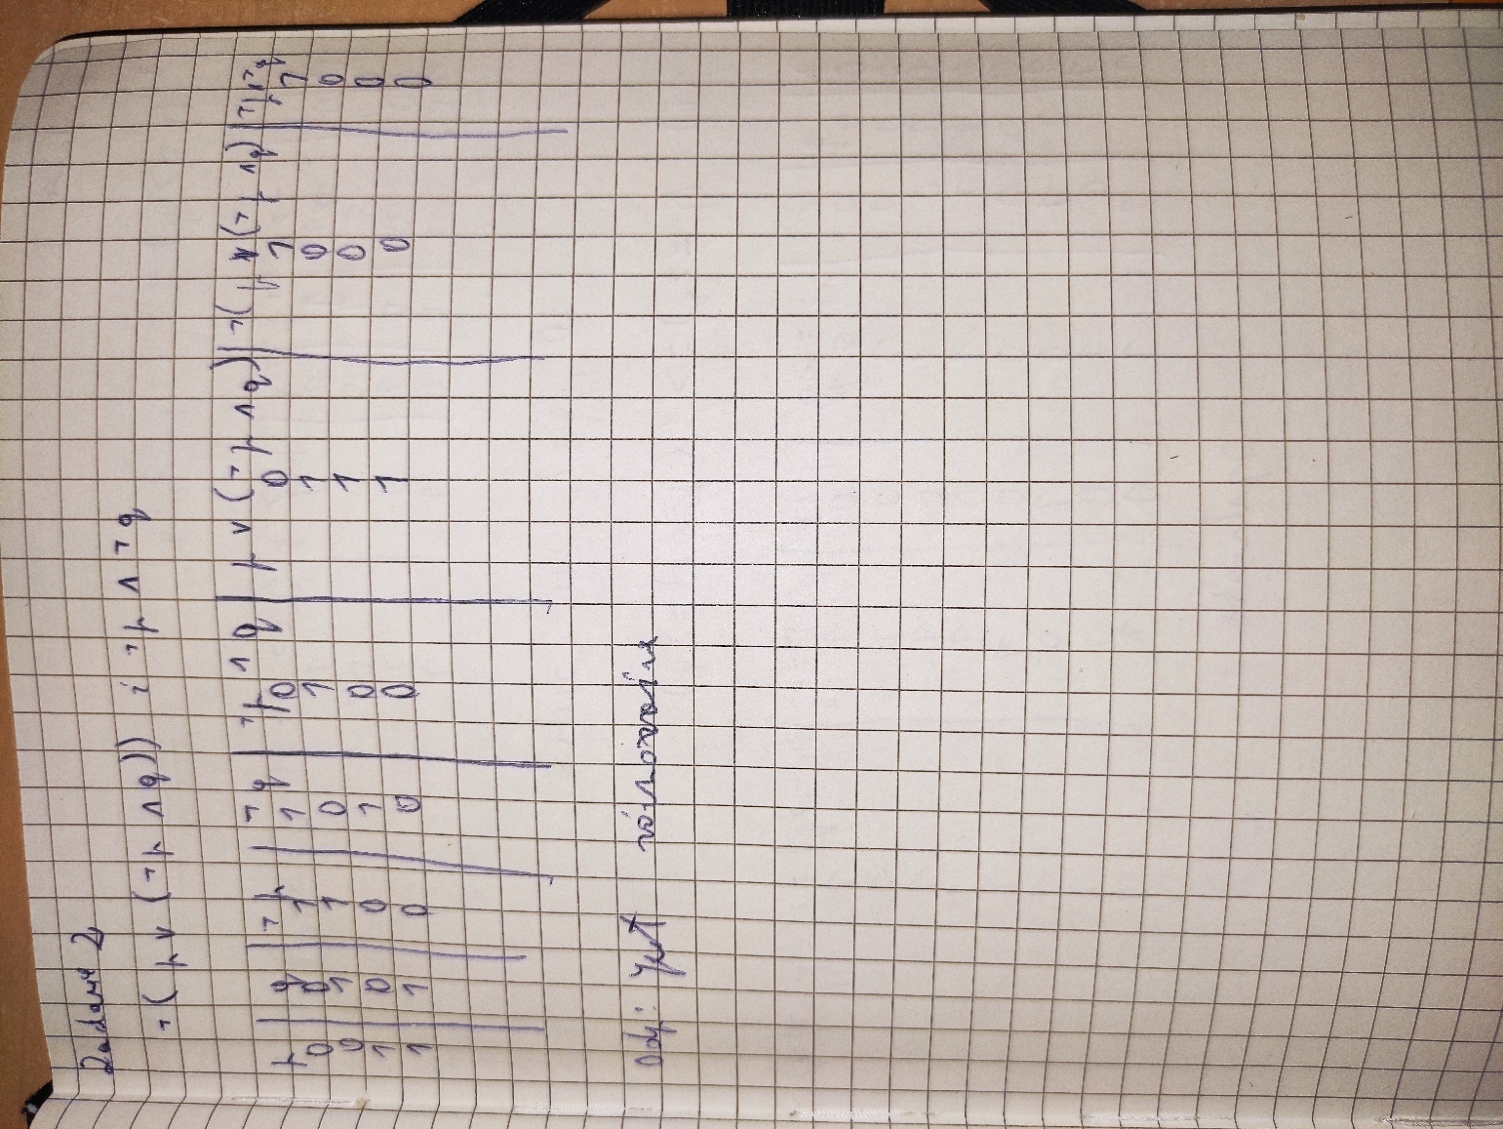 Zadanie 2
¬(p ∨ (¬p ∧ q)) i ¬p ∧ ¬q
p q ¬p ¬q ¬p ∧ q p ∨ (¬p ∧ q) ¬(p ∨ (¬p ∧ q) ¬p ∧ ¬q
0 0 1 1 0 0 1 1
0 1 1 0 1 1 0 0
1 0 0 1 0 1 0 0
1 1 0 0 0 1 0 0
Odp: jest